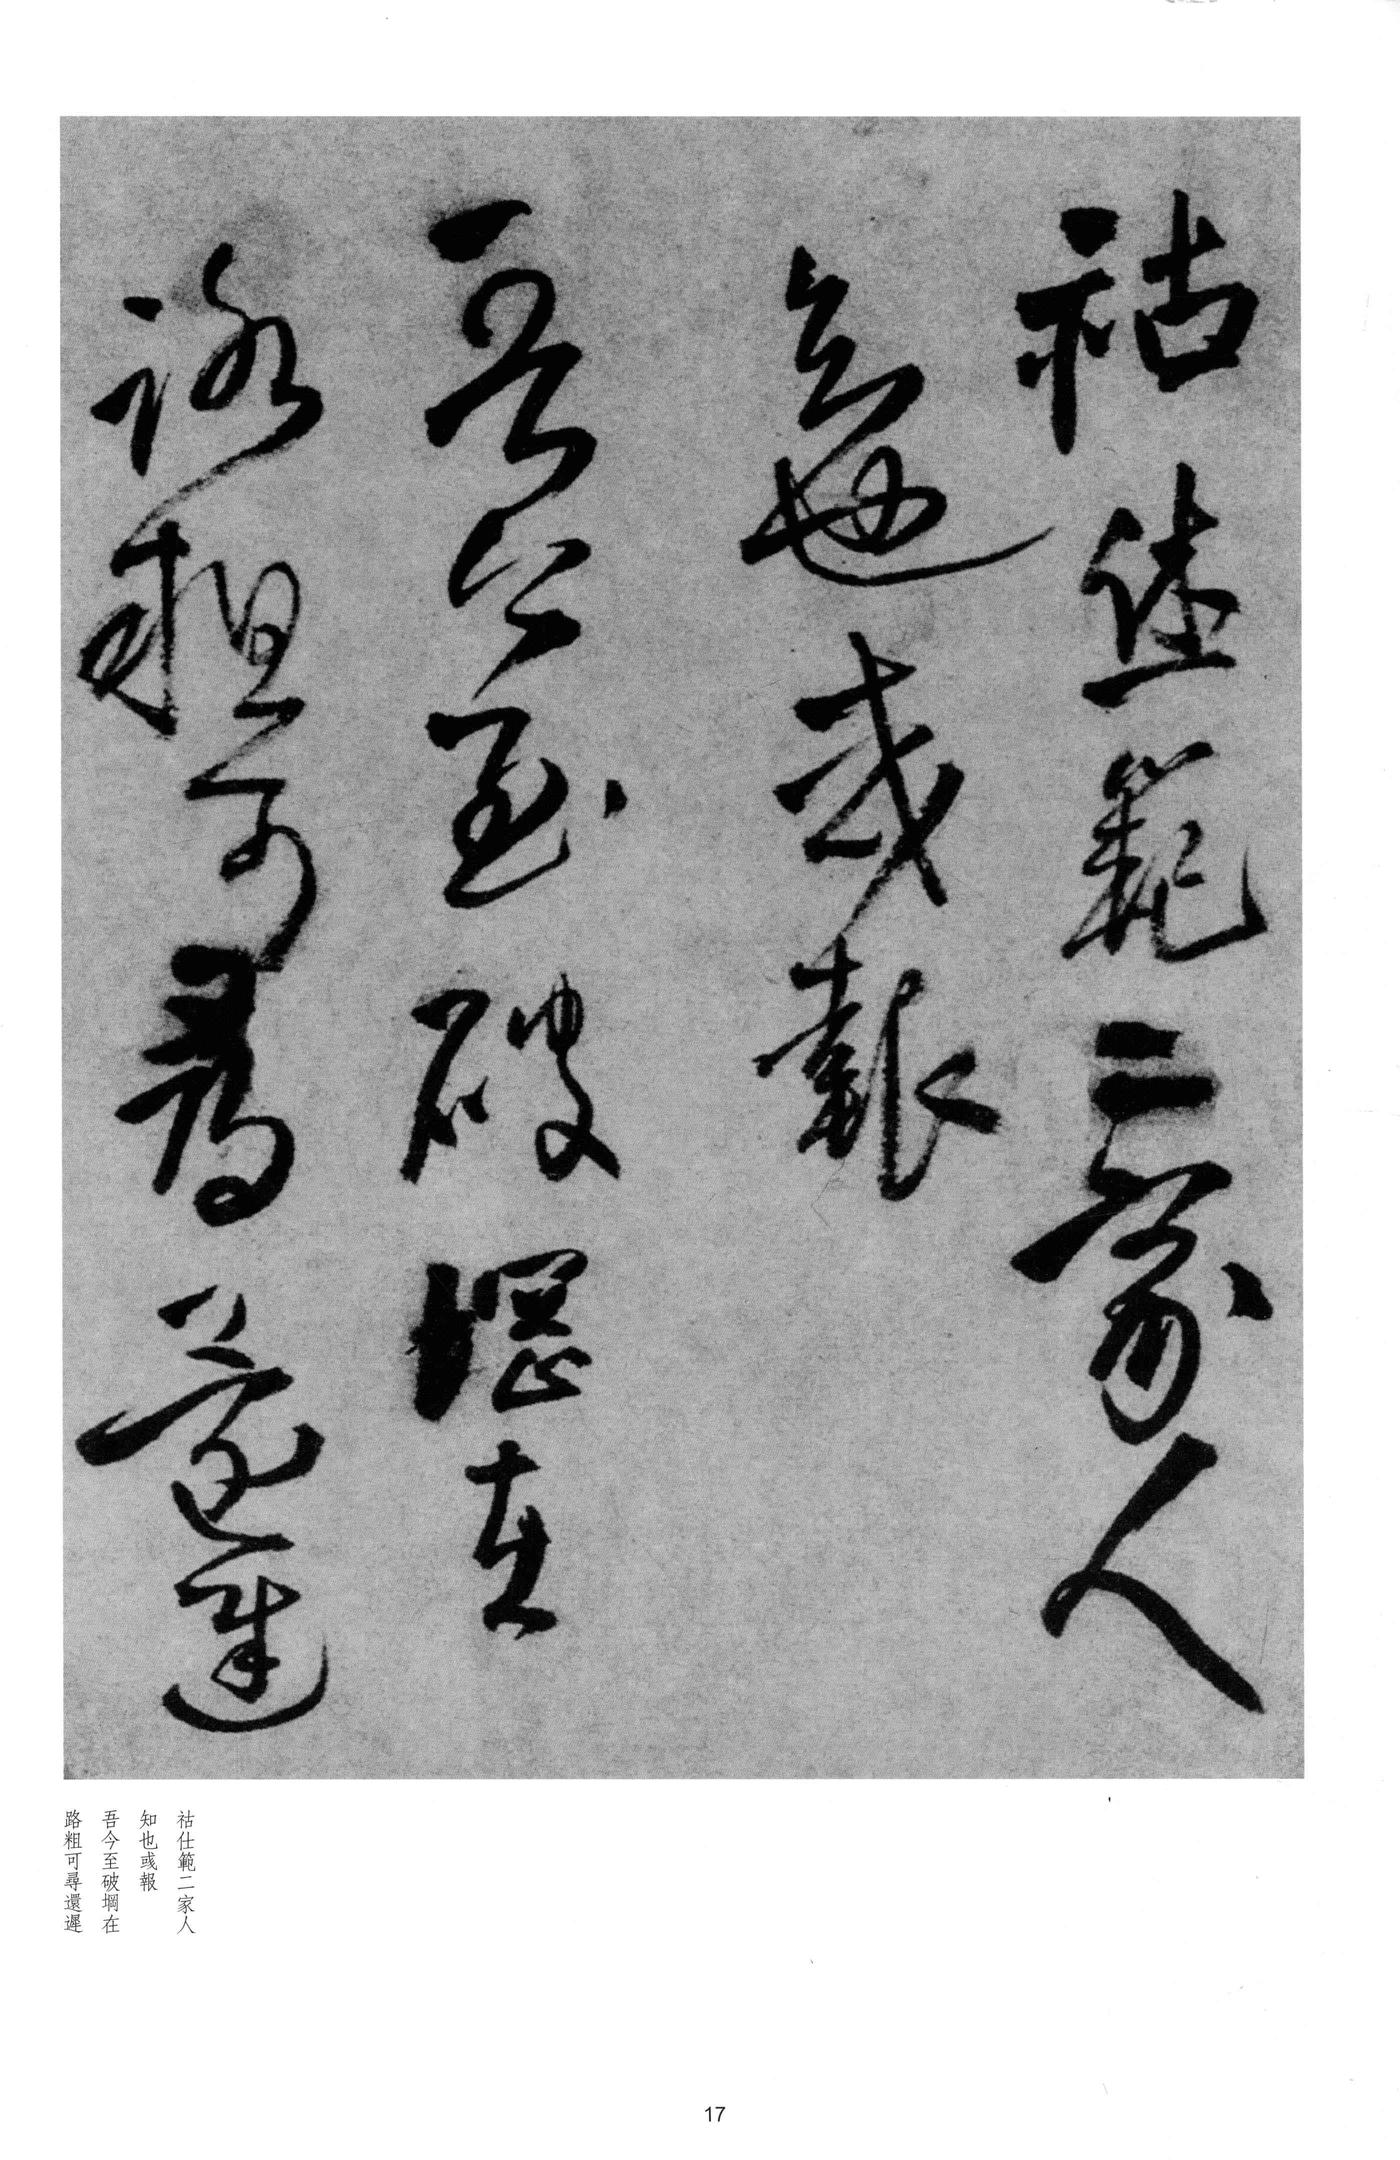 祜仕範二家人
知也或報
吾今至破堽在
路粗可尋還遲
祜仕範二家人
知也或報
吾今至破堽在
路粗可尋還遲
17